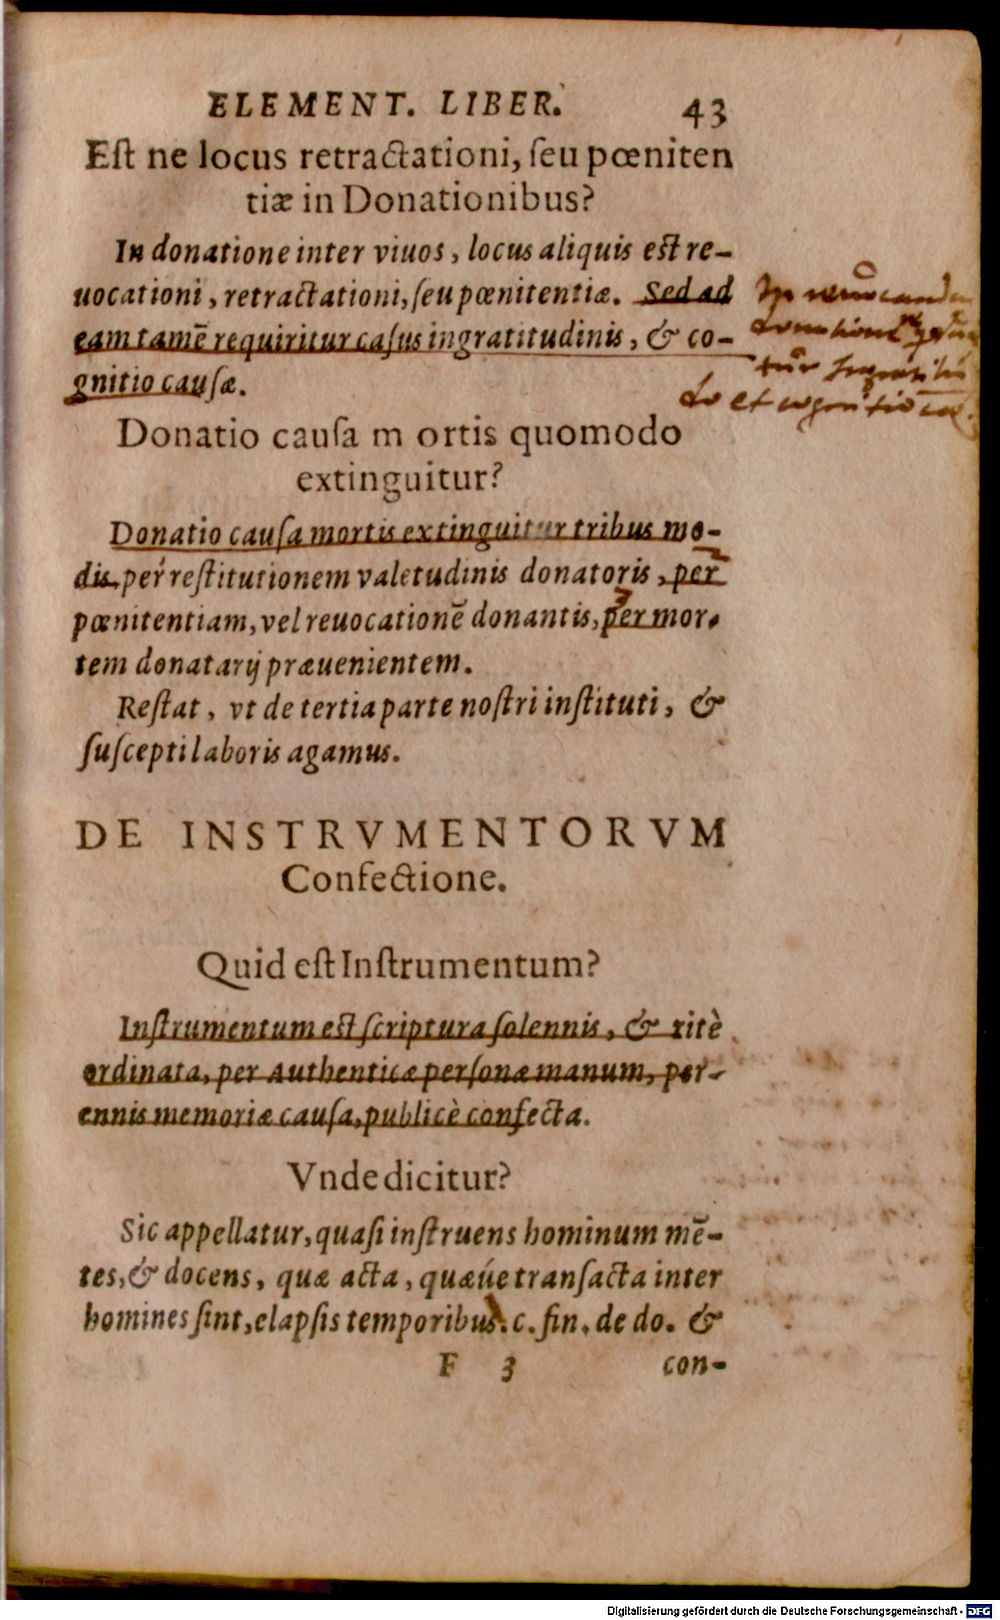 ELEMENT. LIBER. 43
Eſt ne locus retractationi, ſeu pœniten
tiæ in Donationibus?
In donatione inter viuos, locus aliquis est re-
uocationi, retractationi, ſeu pœnitentiæ. Sed ad
eam tamē requiritur caſus ingratitudinis, & co-
gnitio cauſæ.
In reuocanda
donatione
do et cognitio
Donatio cauſa m ortis quomodo
extinguitur?
Donatio cauſa mortis extinguitur tribus mo-
dis, per reſtitutionem valetudinis donatoris, per
pœnitentiam, vel reuocationē donantis, per mor-
tem donatarij præuenientem.
Reſtat, vt de tertia parte noſtri inſtituti, &
ſuſcepti laboris agamus.
DE INSTRVMENTORVM
Confectione.
Quid eſt Inſtrumentum?
Inſtrumentum est ſcriptura ſolennis, & ritè
ordinata, per Authenticæ perſonæ manum, per-
ennis memoriæ cauſa, publicè confecta.
Vnde dicitur?
Sic appellatur, quaſi inſtruens hominum mē-
tes, & docens, quæ acta, quæúe tranſacta inter
homines ſint, elapſis temporibus. c. fin. de do. &
F 3 con-
Digitalisierung gefördert durch die Deutsche Forschungsgemeinschaft - DFG